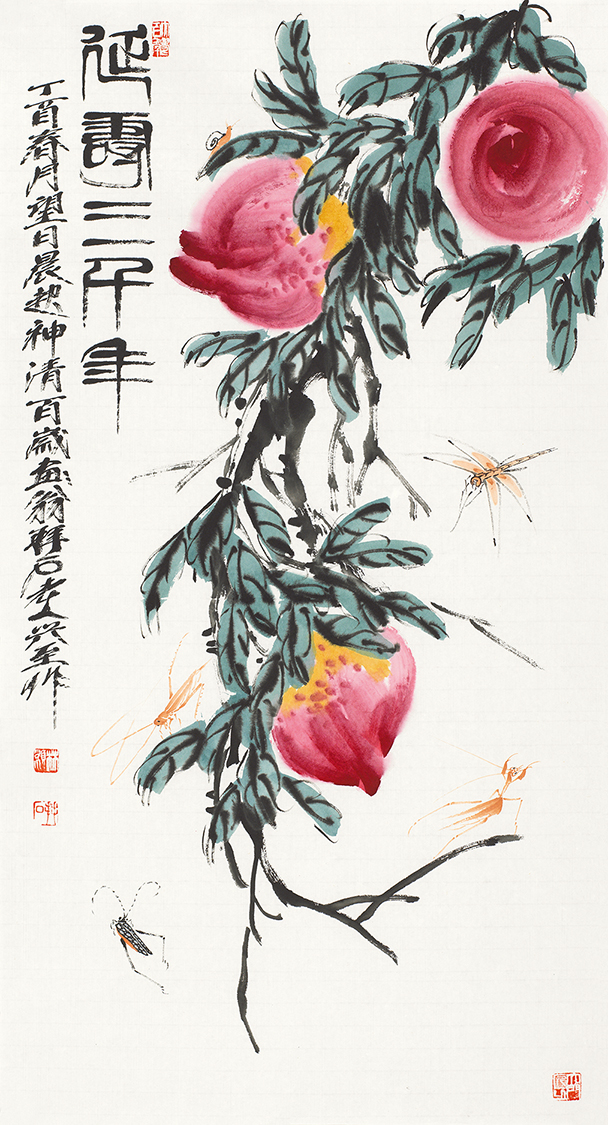 延壽三千年
丁酉春月望日晨起神清百歲畫翁石老人興至作